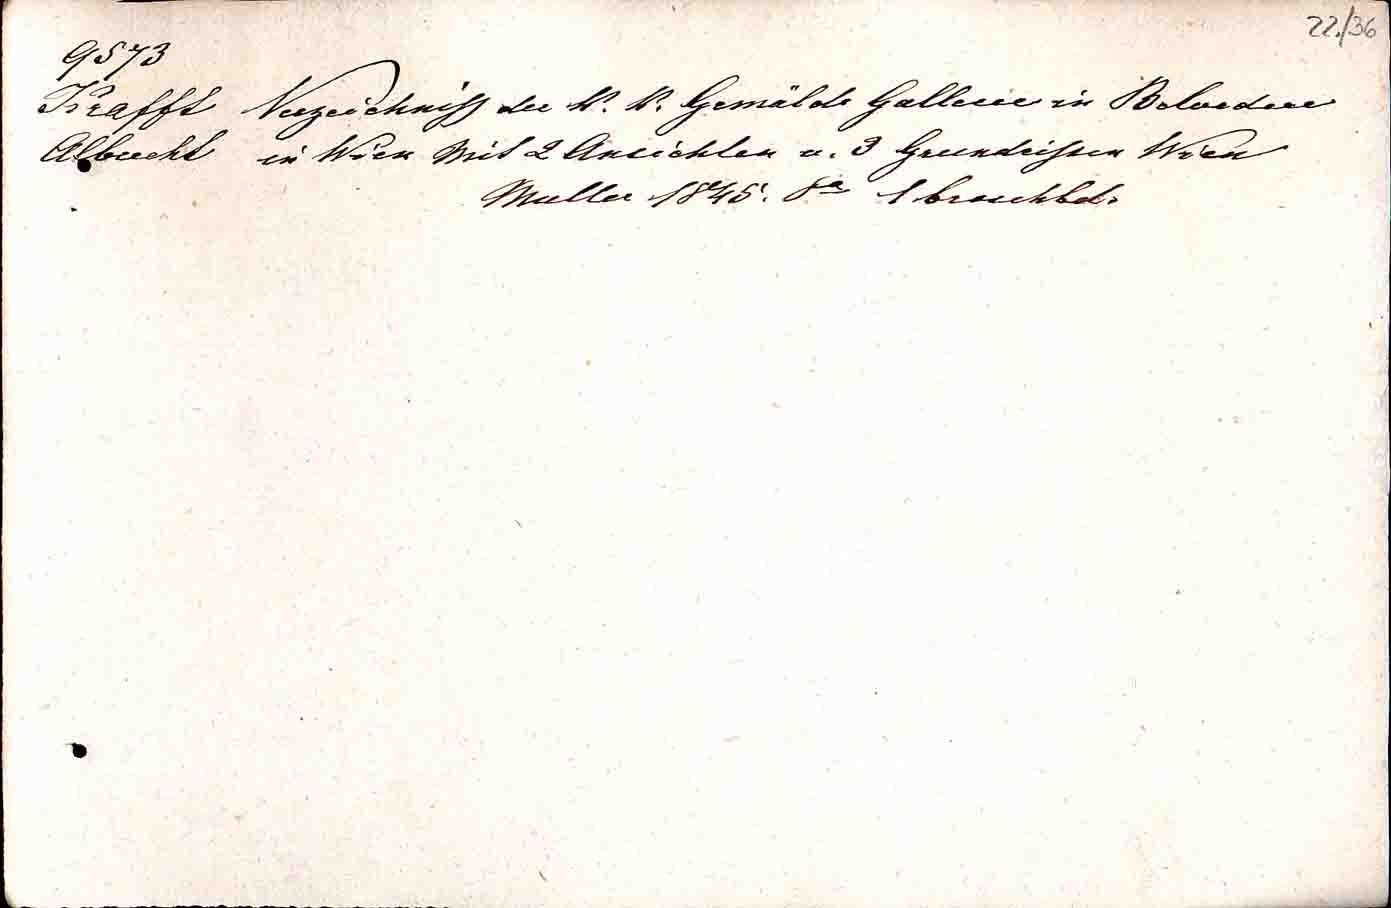 22./36
9573
Krafft Verzeichniss der K. K. Gemälde Gallerie in Belvedere
Albrecht in Wien Mit 2 Ansichten u. 3 Grundrissen Wien
Muller 1845. 8° 1 brosch bd.